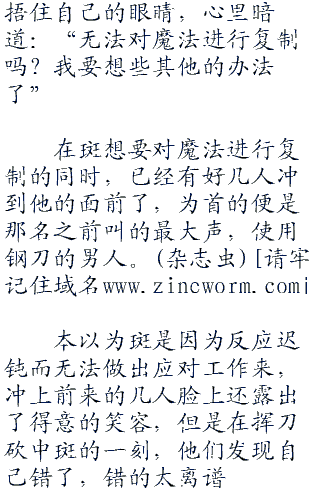 捂住自己的眼睛，心里暗
道：“无法对魔法进行复制
吗？我要想些其他的办法
了”
在斑想要对魔法进行复
制的同时，已经有好几人冲
到他的面前了，为首的便是
那名之前叫的最大声，使用
钢刀的男人。(杂志虫)[请牢
记住域名www.zincworm.com]
本以为斑是因为反应迟
钝而无法做出应对工作来，
冲上前来的几人脸上还露出
了得意的笑容，但是在挥刀
砍中斑的一刻，他们发现自
己错了，错的太离谱